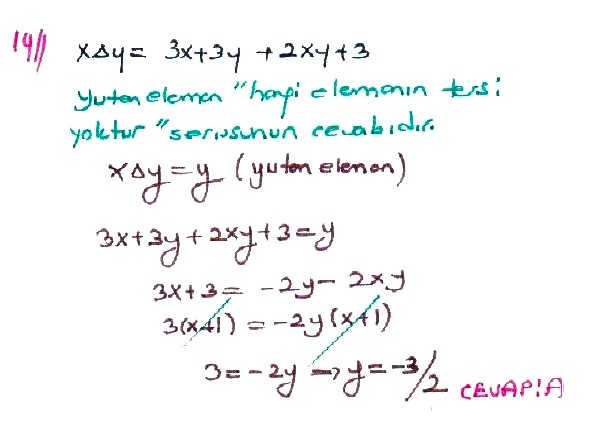 14// x∆y = 3x+3y+2xy+3
Yutan eleman "hangi elemanın tersi
yoktur" sorusunun cevabıdır.
x∆y = y (yutan eleman)
3x+3y+2xy+3=y
3x+3 = -2y-2xy
3(x+1) = -2y(x+1)
3=-2y → y=-3/2 CEVAP:A